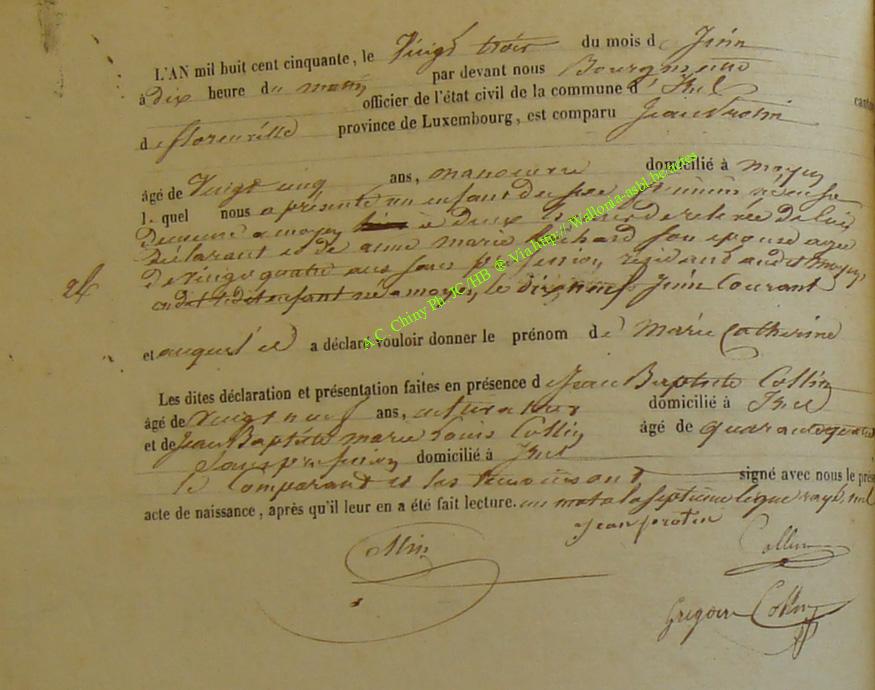 L'AN mil huit cent cinquante, le Vingt trois du mois d Juin
à dix heure du matin par devant nous Bourgmestre
officier de l'état civil de la commune d' Izel canto
d e florenville province de Luxembourg, est comparu Jean Protin
âgé de Vingt cinq ans, manoeuvre domicilié à moyen
l quel nous a présenté un enfant du sexe féminin né en sa
demeure a moyen à deux heures de relevée de lui
déclarant et de anne marie Richard son epouse agée
de vingt quatre ans sans profession, résidant audit moyen,
le dit enfant né a moyen, le dix neuf Juin Courant
2f
et auquel il a déclaré vouloir donner le prénom d e marie Catherine
Les dites déclaration et présentation faites en présence d e Jean Baptiste Collin
âgé de Vingt neuf ans, cultivateur domicilié à Izel
et de Jean Baptiste marie Louis Collin âgé de quarante quatre
Sans profession domicilié à Izel
le Comparant et les temoins ont signé avec nous le prés
acte de naissance, après qu'il leur en a été fait lecture. un mot a la septieme ligne rayé nul
Jean protin
Collin
Collin
Grégoire Collin
A.C. Chiny Ph. JC /HB @ Via http:// Wallonia-asbl.be/actes